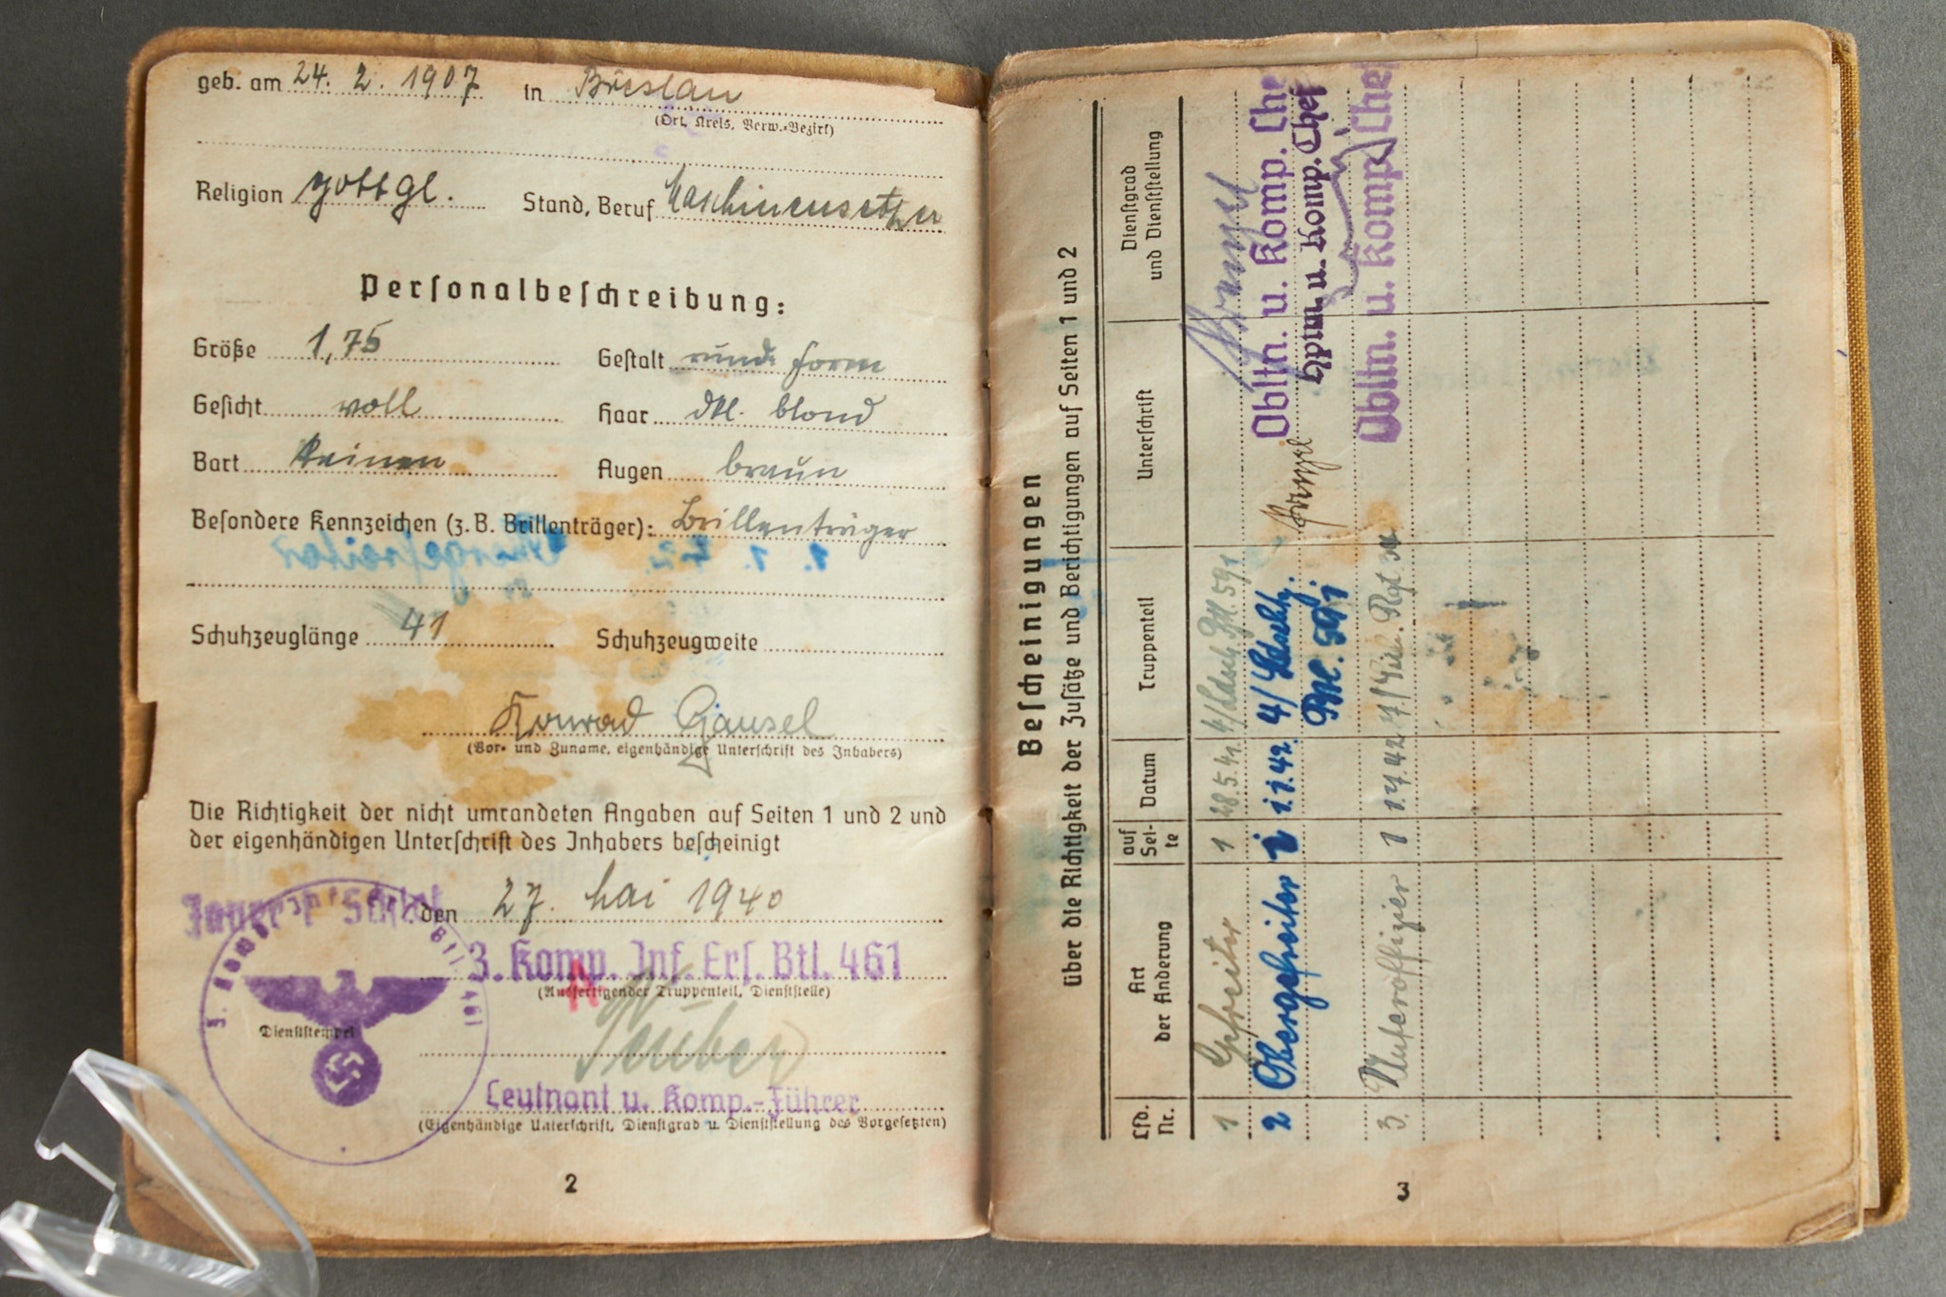 geb. am 24. 2. 1907 in Breslau
(Ort, Kreis, Verw.-Bezirk)
Religion gottgl. Stand, Beruf Maschinensetzer
Personalbeschreibung:
Größe 1,75 Gestalt runde Form
Gesicht voll Haar dkl. blond
Bart keinen Augen braun
Besondere Kennzeichen (z.B. Brillenträger): Brillenträger
Schuhzeuglänge 41 Schuhzeugweite
Konrad Gausel
(Vor- und Zuname, eigenhändige Unterschrift des Inhabers)
Die Richtigkeit der nicht umrandeten Angaben auf Seiten 1 und 2 und
der eigenhändigen Unterschrift des Inhabers bescheinigt
den 27. Mai 1940
3. Komp. Inf. Ers. Btl. 461
(Ausfertigender Truppenteil, Dienststelle)
Dienststempel
Leutnant u. Komp.-Führer
(Eigenhändige Unterschrift, Dienstgrad u. Dienststellung des Vorgesetzten)
2
Bescheinigungen
über die Richtigkeit der Zusätze und Berichtigungen auf Seiten 1 und 2
Lfd. Nr. Art der Änderung auf Seite Datum Truppenteil Unterschrift Dienstgrad und Dienststellung
1 Gefreiter 1 28.5.41 4/Ldsch. Btl. 591
Obltn. u. Komp. Chef
2 Obergefreiter 1 1.1.42. 4/Ldsch.
Btl. 591
Hptm. u. Komp. Chef
3. Unteroffizier 1 1.7.42
Obltn. u. Komp. Chef
3